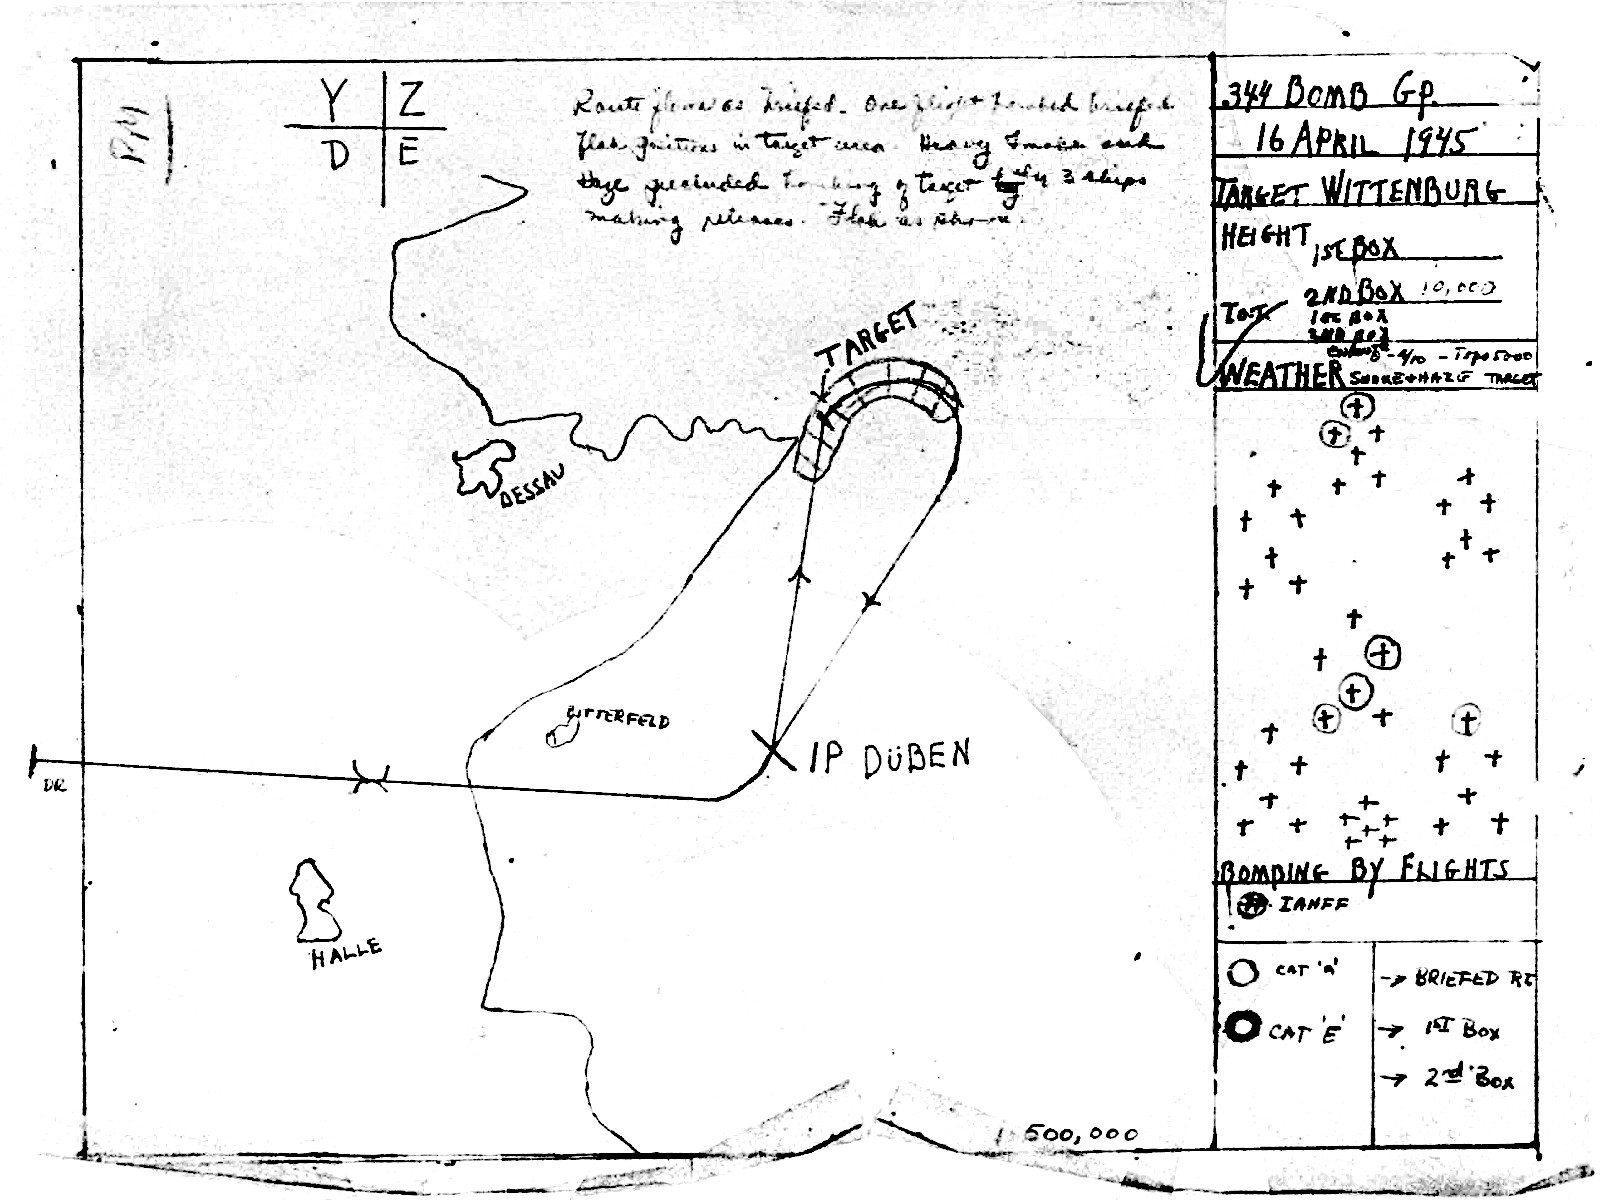 PM
Y Z
D E
Route flown as briefed. One flight bombed briefed
flak positions in target area. Heavy Smoke and
Haze precluded bombing of target by 3 ships
making releases. Flak as shown.
TARGET
DESSAU
BITTERFELD
IP DÜBEN
DR
HALLE
1 500,000
344 BOMB GP.
16 APRIL 1945
TARGET WITTENBURG
HEIGHT 1ST BOX
2ND BOX 10,000
T.O.T. 1ST BOX
2ND BOX
4/10 - Tops 5000
WEATHER SMOKE + HAZE TARGET
BOMBING BY FLIGHTS
IANFF
CAT 'A'
CAT 'E'
→ BRIEFED RT
→ 1ST BOX
→ 2nd BOX